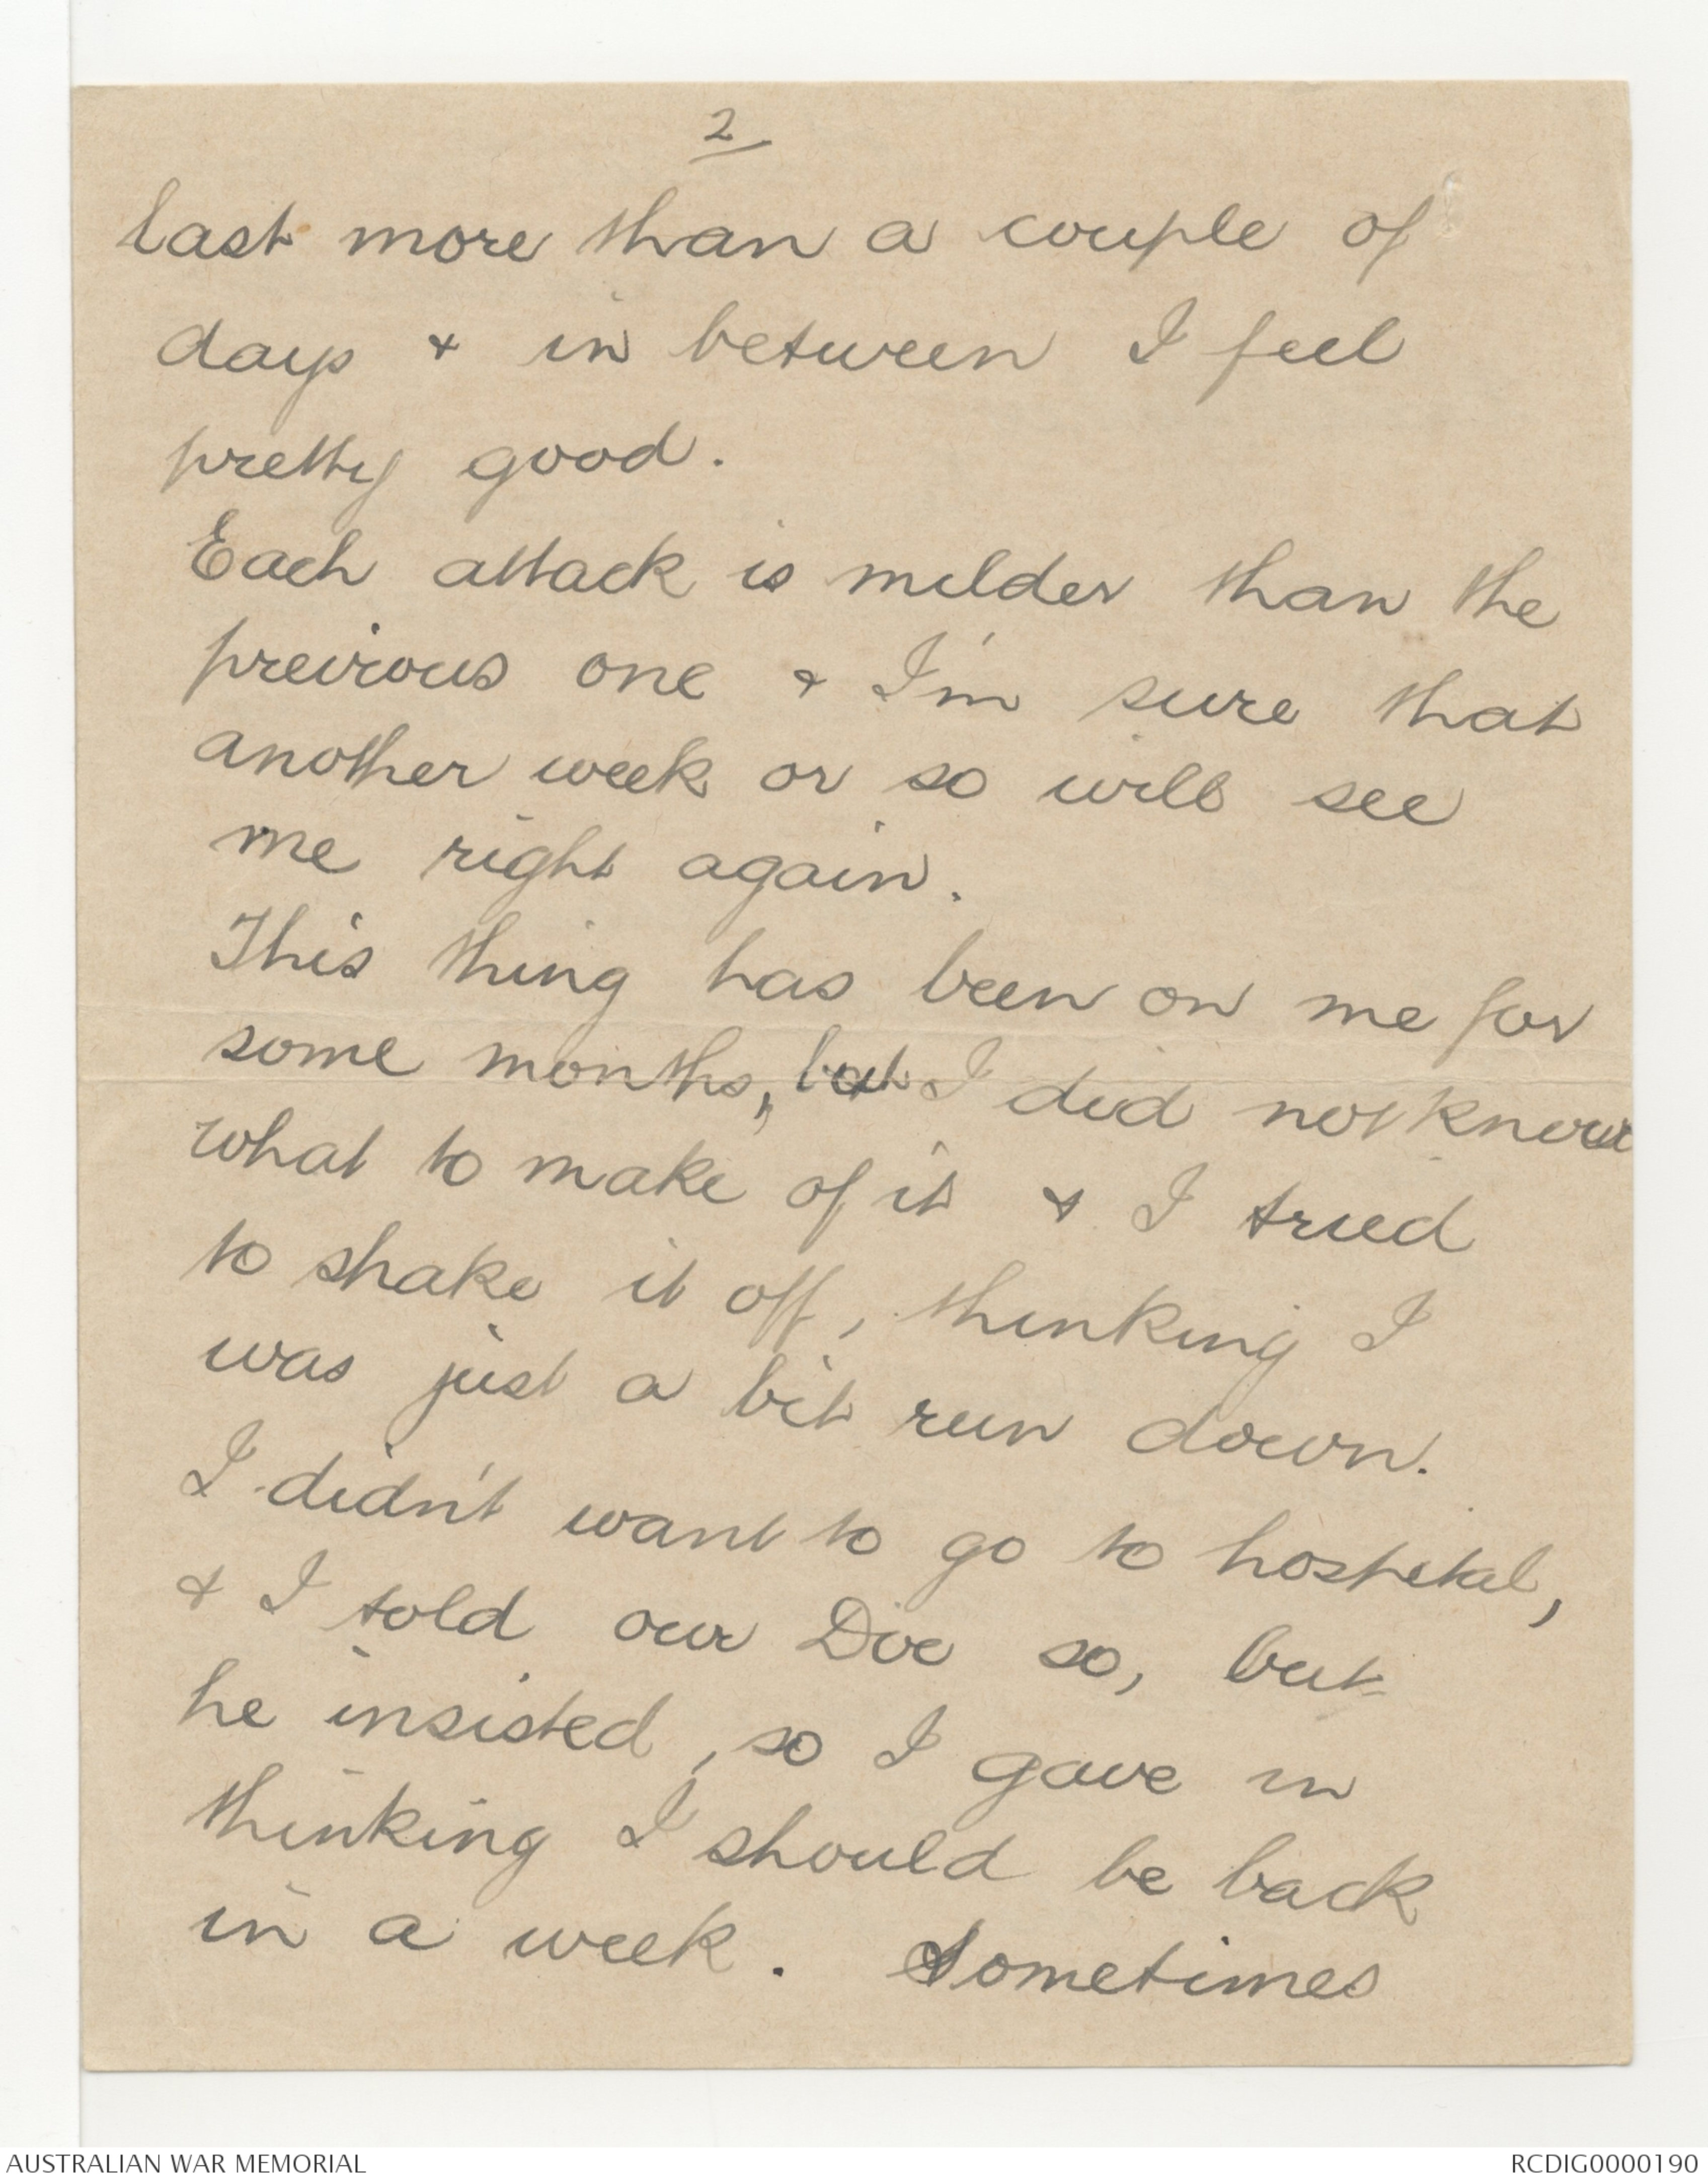 2
last more than a couple of
days & in between I feel
pretty good.
Each attack is milder than the
previous one & I'm sure that
another week or so will see
me right again.
This thing has been on me for
some months, but I did not know
what to make of it & I tried
to shake it off, thinking I
was just a bit run down.
I didn't want to go to hospital,
& I told our Doc so, but
he insisted, so I gave in
thinking I should be back
in a week. Sometimes
AUSTRALIAN WAR MEMORIAL
RCDIG0000190